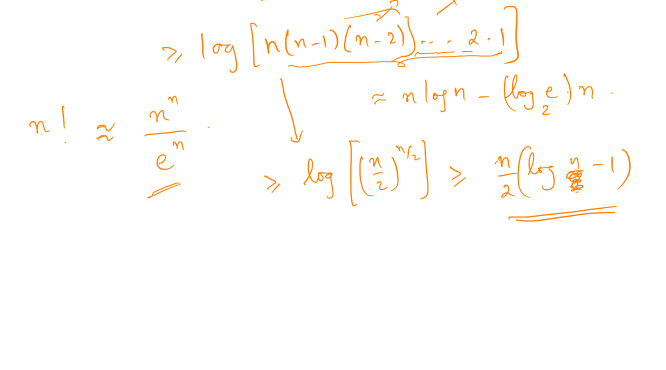 ≥ log [n(n-1)(n-2)] ... 2 · 1]
≈ n log n - (log₂ e) n .
n! ≈ nⁿ / eⁿ .
≥ log [(n/2)^(n/2)] ≥ n/2 (log n - 1)